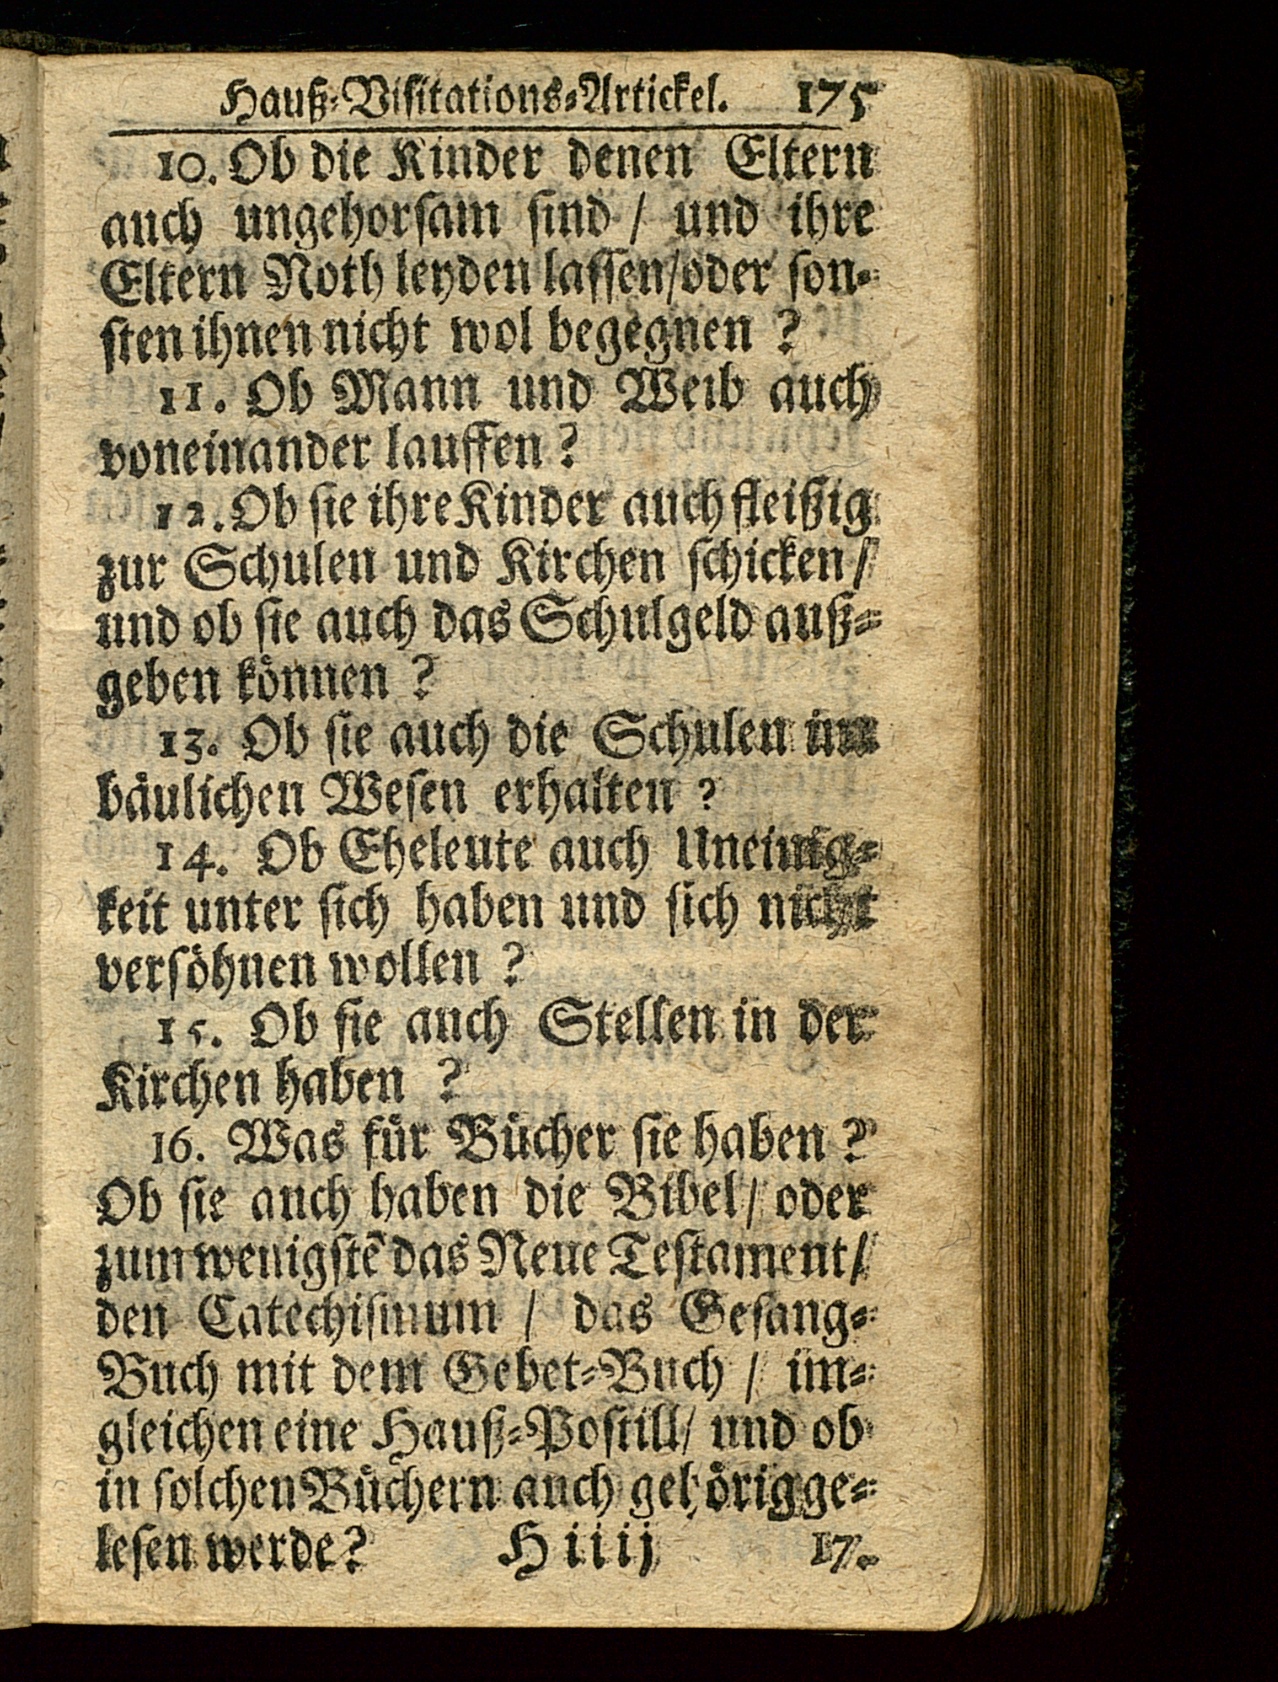 Hauß-Visitations-Artickel. 175
10. Ob die Kinder denen Eltern
auch ungehorsam sind / und ihre
Eltern Noth leyden lassen/oder son-
sten ihnen nicht wol begegnen ?
11. Ob Mann und Weib auch
voneinander lauffen ?
12. Ob sie ihre Kinder auch fleißig
zur Schulen und Kirchen schicken/
und ob sie auch das Schulgeld auß-
geben können ?
13. Ob sie auch die Schulen im
bäulichen Wesen erhalten ?
14. Ob Eheleute auch Uneinig-
keit unter sich haben und sich nicht
versöhnen wollen ?
15. Ob sie auch Stellen in der
Kirchen haben ?
16. Was für Bücher sie haben ?
Ob sie auch haben die Bibel/ oder
zum wenigstē das Neue Testament/
den Catechismum / das Gesang-
Buch mit dem Gebet-Buch / im-
gleichen eine Hauß-Postill/ und ob
in solchen Büchern auch gehörig ge-
lesen werde? H iiij 17.